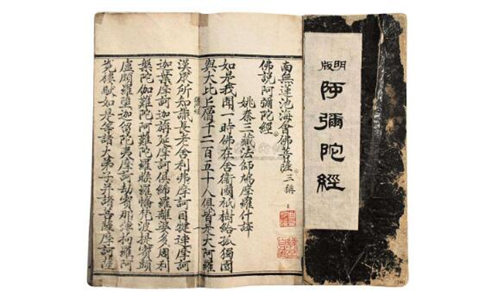 明版
阿彌陀經
南無蓮池海會佛菩薩三稱
佛說阿彌陀經
姚秦三藏法師鳩摩羅什譯
如是我聞一時佛在舍衛國祇樹給孤獨園
與大比丘僧千二百五十人俱皆是大阿羅
漢眾所知識長老舍利弗摩訶目犍連摩訶
迦葉摩訶俱絺羅離婆多周利
槃陀伽難陀阿難陀羅睺羅憍梵波提賓頭
盧頗羅墮迦留陀夷摩訶劫賓那薄拘羅阿
樓馱如是等諸大弟子并諸菩薩摩訶薩